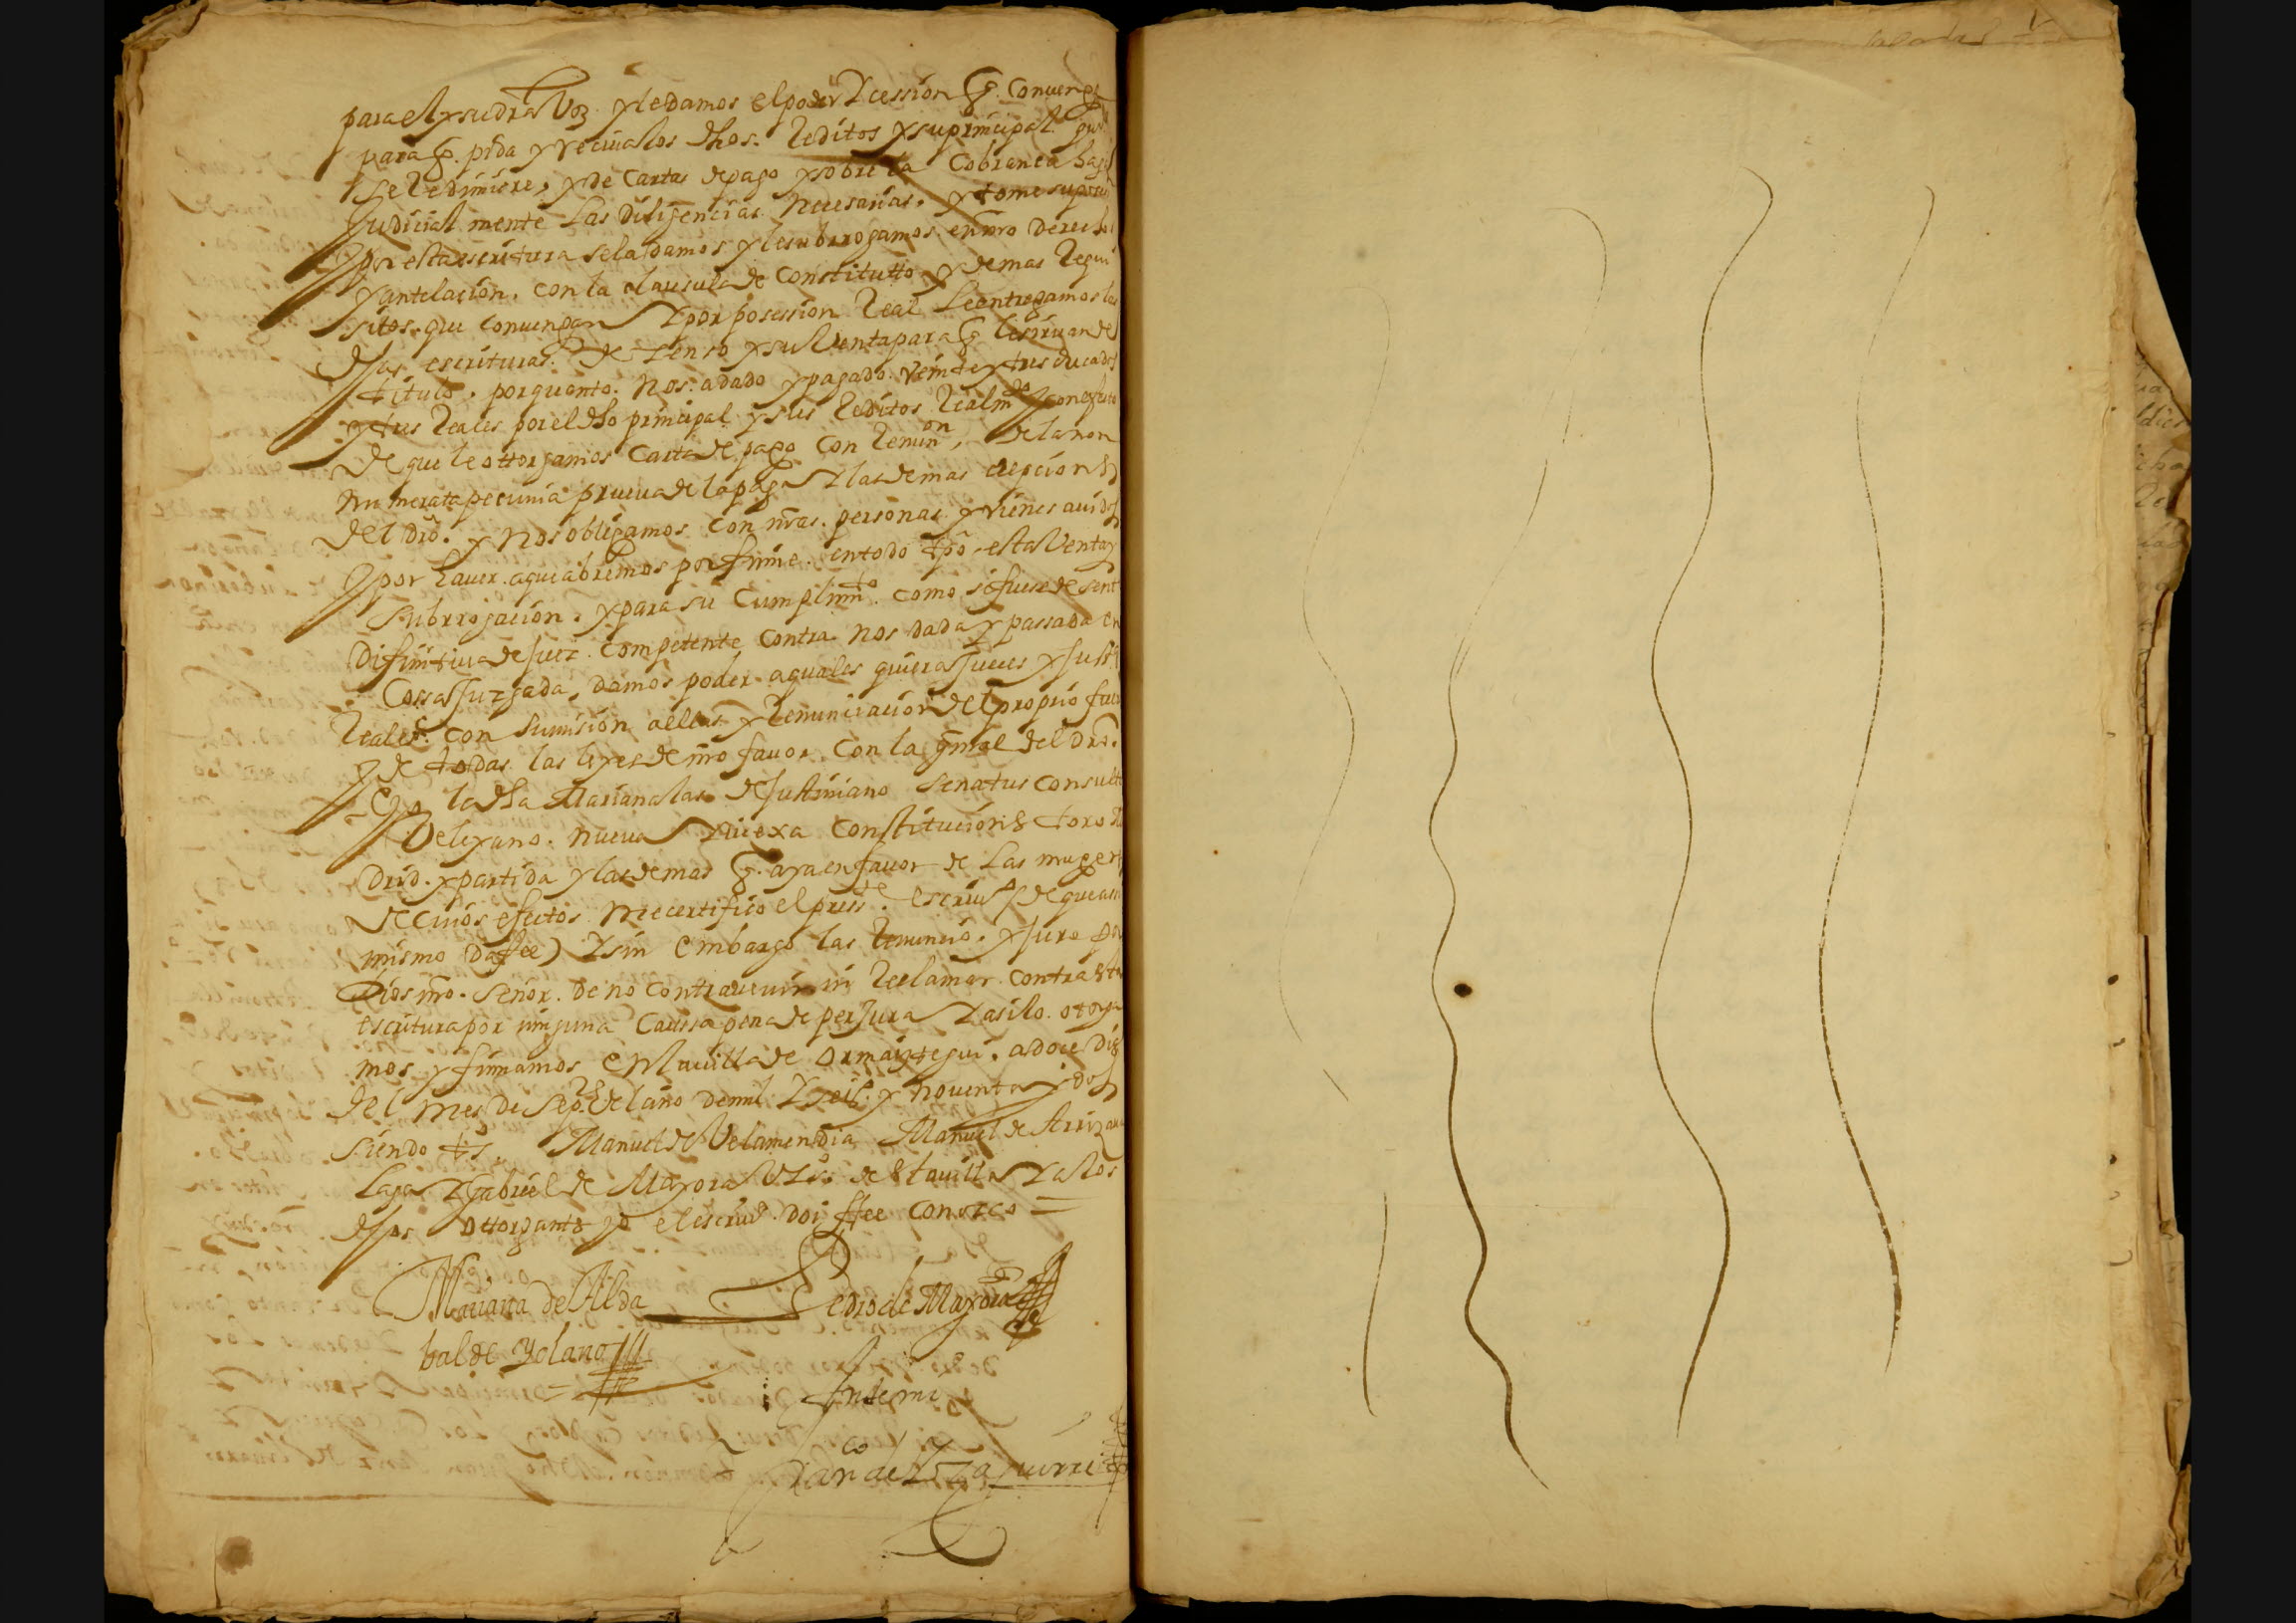 para el y su dra Voz y le damos el poder Y cession q. convenga
para q. pida y reciua los dhos. Reditos y su principal
se Redimiere, y de Cartas de pago y sobre la Cobranca haga
Judicial mente Las Diligencias Necesarias. y tome
por esta escritura se la damos y le subrrogamos en nro Derecho
y antelacion. con la clausula de Constitutto, y demas Requi
sitos. que convengan Y por posession Real Le entregamos las
dhas escrituras. de Zenso y su Venta para q. le siruan de
titulo. por quanto. nos. a dado y pagado. veinte y tres ducados
y tres Reales por el dho principal y sus Reditos Realmte y con efecto
de que le ottorgamos Carta de pago con Renunon, de la non
numerata pecunia prueua de la paga Y las demas excepciones
del Dro. y Nos obligamos con nras. personas y vienes auidos
y por hauer. a que abremos por firme. en todo tpo. esta Venta y
subrrogacion. y para su Cumplimto. como si fuese de sent
Difinitiua de Juez. Competente Contra nos dada y passada en
Cossa Juzgada, damos poder a quales quiera Jueces y Justi
Reales. con sumision a ellas y Renunciacion del proprio fuero
y de todas las leyes de nro fauor. con la gnral del Dro.
E Yo la dha Mariana las de Justiniano Senatus consulto
Veleyano. nueua Y viexa Constituciones toro
Drid. y partida y las demas q. aya en fauor de Las mugeres
de cuios efectos me certifico el preste. escriuo. (de que assi
mismo Da fee) Y sin embargo las Renuncio. y Juro por
Dios nro. Señor. de no contrauenir ni Reclamar contra esta
escritura por ninguna Caussa pena de perJura Y asi lo. otorga
mos y firmamos en la villa de Ormaiztegui. a doce dias
del mes de Sepre. del año de mil Y seis. y Noventa y dos
siendo ts. Manuel de Velamendia Manuel de Arriza
laga Y Gabriel de Mayora Vzos. de esta villa Y a los
dhos ottorgantes yo el escriuo. doi ffee conozco =
Mariana de Alda Pedro de Mayora
balde Yolano
Ante mi
Franco de Yzaguirre